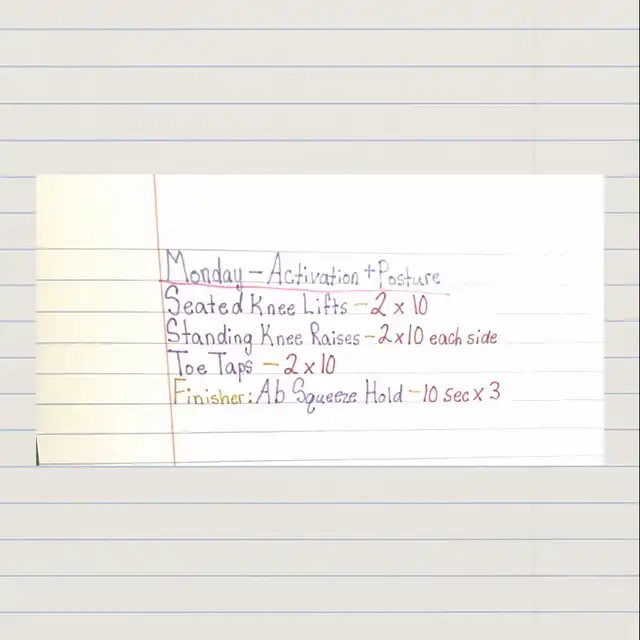 Monday - Activation + Posture
Seated Knee Lifts - 2 x 10
Standing Knee Raises - 2 x 10 each side
Toe Taps - 2 x 10
Finisher: Ab Squeeze Hold - 10 sec x 3